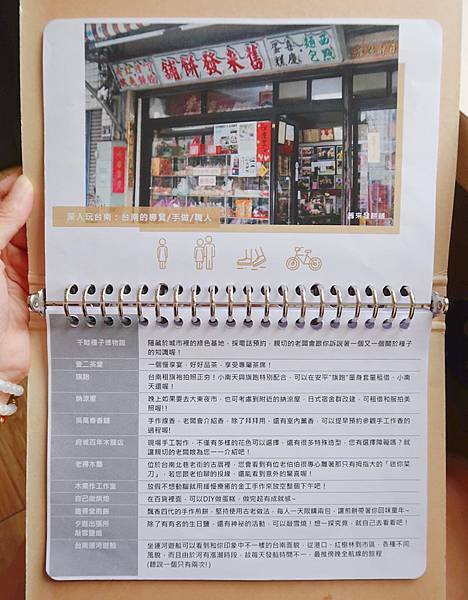 舊來發餅舖
深入玩台南：台南的導覽/手做/職人
舊來發餅舖
千畦種子博物館
隱藏於城市裡的綠色基地，採電話預約，親切的老闆會跟你訴說著一個又一個關於種子
的知識喔！
衛二茶堂
一個慢享宴，好好品茶，享受專屬茶席！
旗跑
台南租旗袍拍照正夯！小南天與旗跑特別配合，可以在安平"旗跑"量身套量租借、小南
天還喔！
納涼屋
晚上如果要去大東夜市，也可考慮到附近的納涼屋，日式宿舍群改建，可租借和服拍美
照喔!!
吳萬春香鋪
手作線香，老闆會介紹香，除了拜拜用，還有室內薰香，可以提早預約參觀手工作香的
過程喔!
府城百年木屐店
現場手工製作，不僅有多樣的花色可以選擇，還有很多特殊造型，您有選擇障礙嗎？就
讓親切的老闆娘為您一一介紹吧！
老得木雕
位於台南北巷老街的古厝裡，您會看到有位老伯伯很專心雕著那只有拇指大的「迷你菜
刀」，若跟老伯聊的投緣，還能看到意外的驚喜喔！
木藝作工作室
放假不想動腦就用緩慢療癒的金工手作來放空整個下午吧！
自己做烘焙
在百貨裡面，可以DIY做蛋糕，做完超有成就感~
連得堂煎餅
飄香四代的手作煎餅，堅持使用古老做法，每人一天限購兩包，讓煎餅帶著你回味童年~
夕遊出張所
敲鹽體燒
除了有有名的生日鹽，還有神祕的活動，可以敲雪燒！想一探究竟，就自己去看看吧！
台南運河遊船
坐運河遊船可以看到和你印象中不一樣的台南面貌，從港口、紅樹林到市區，各種不同
風貌，而且由於河有漲潮時段，故每天發船時間不一，最推傍晚全航線的旅程
(聽說一個只有兩次!)